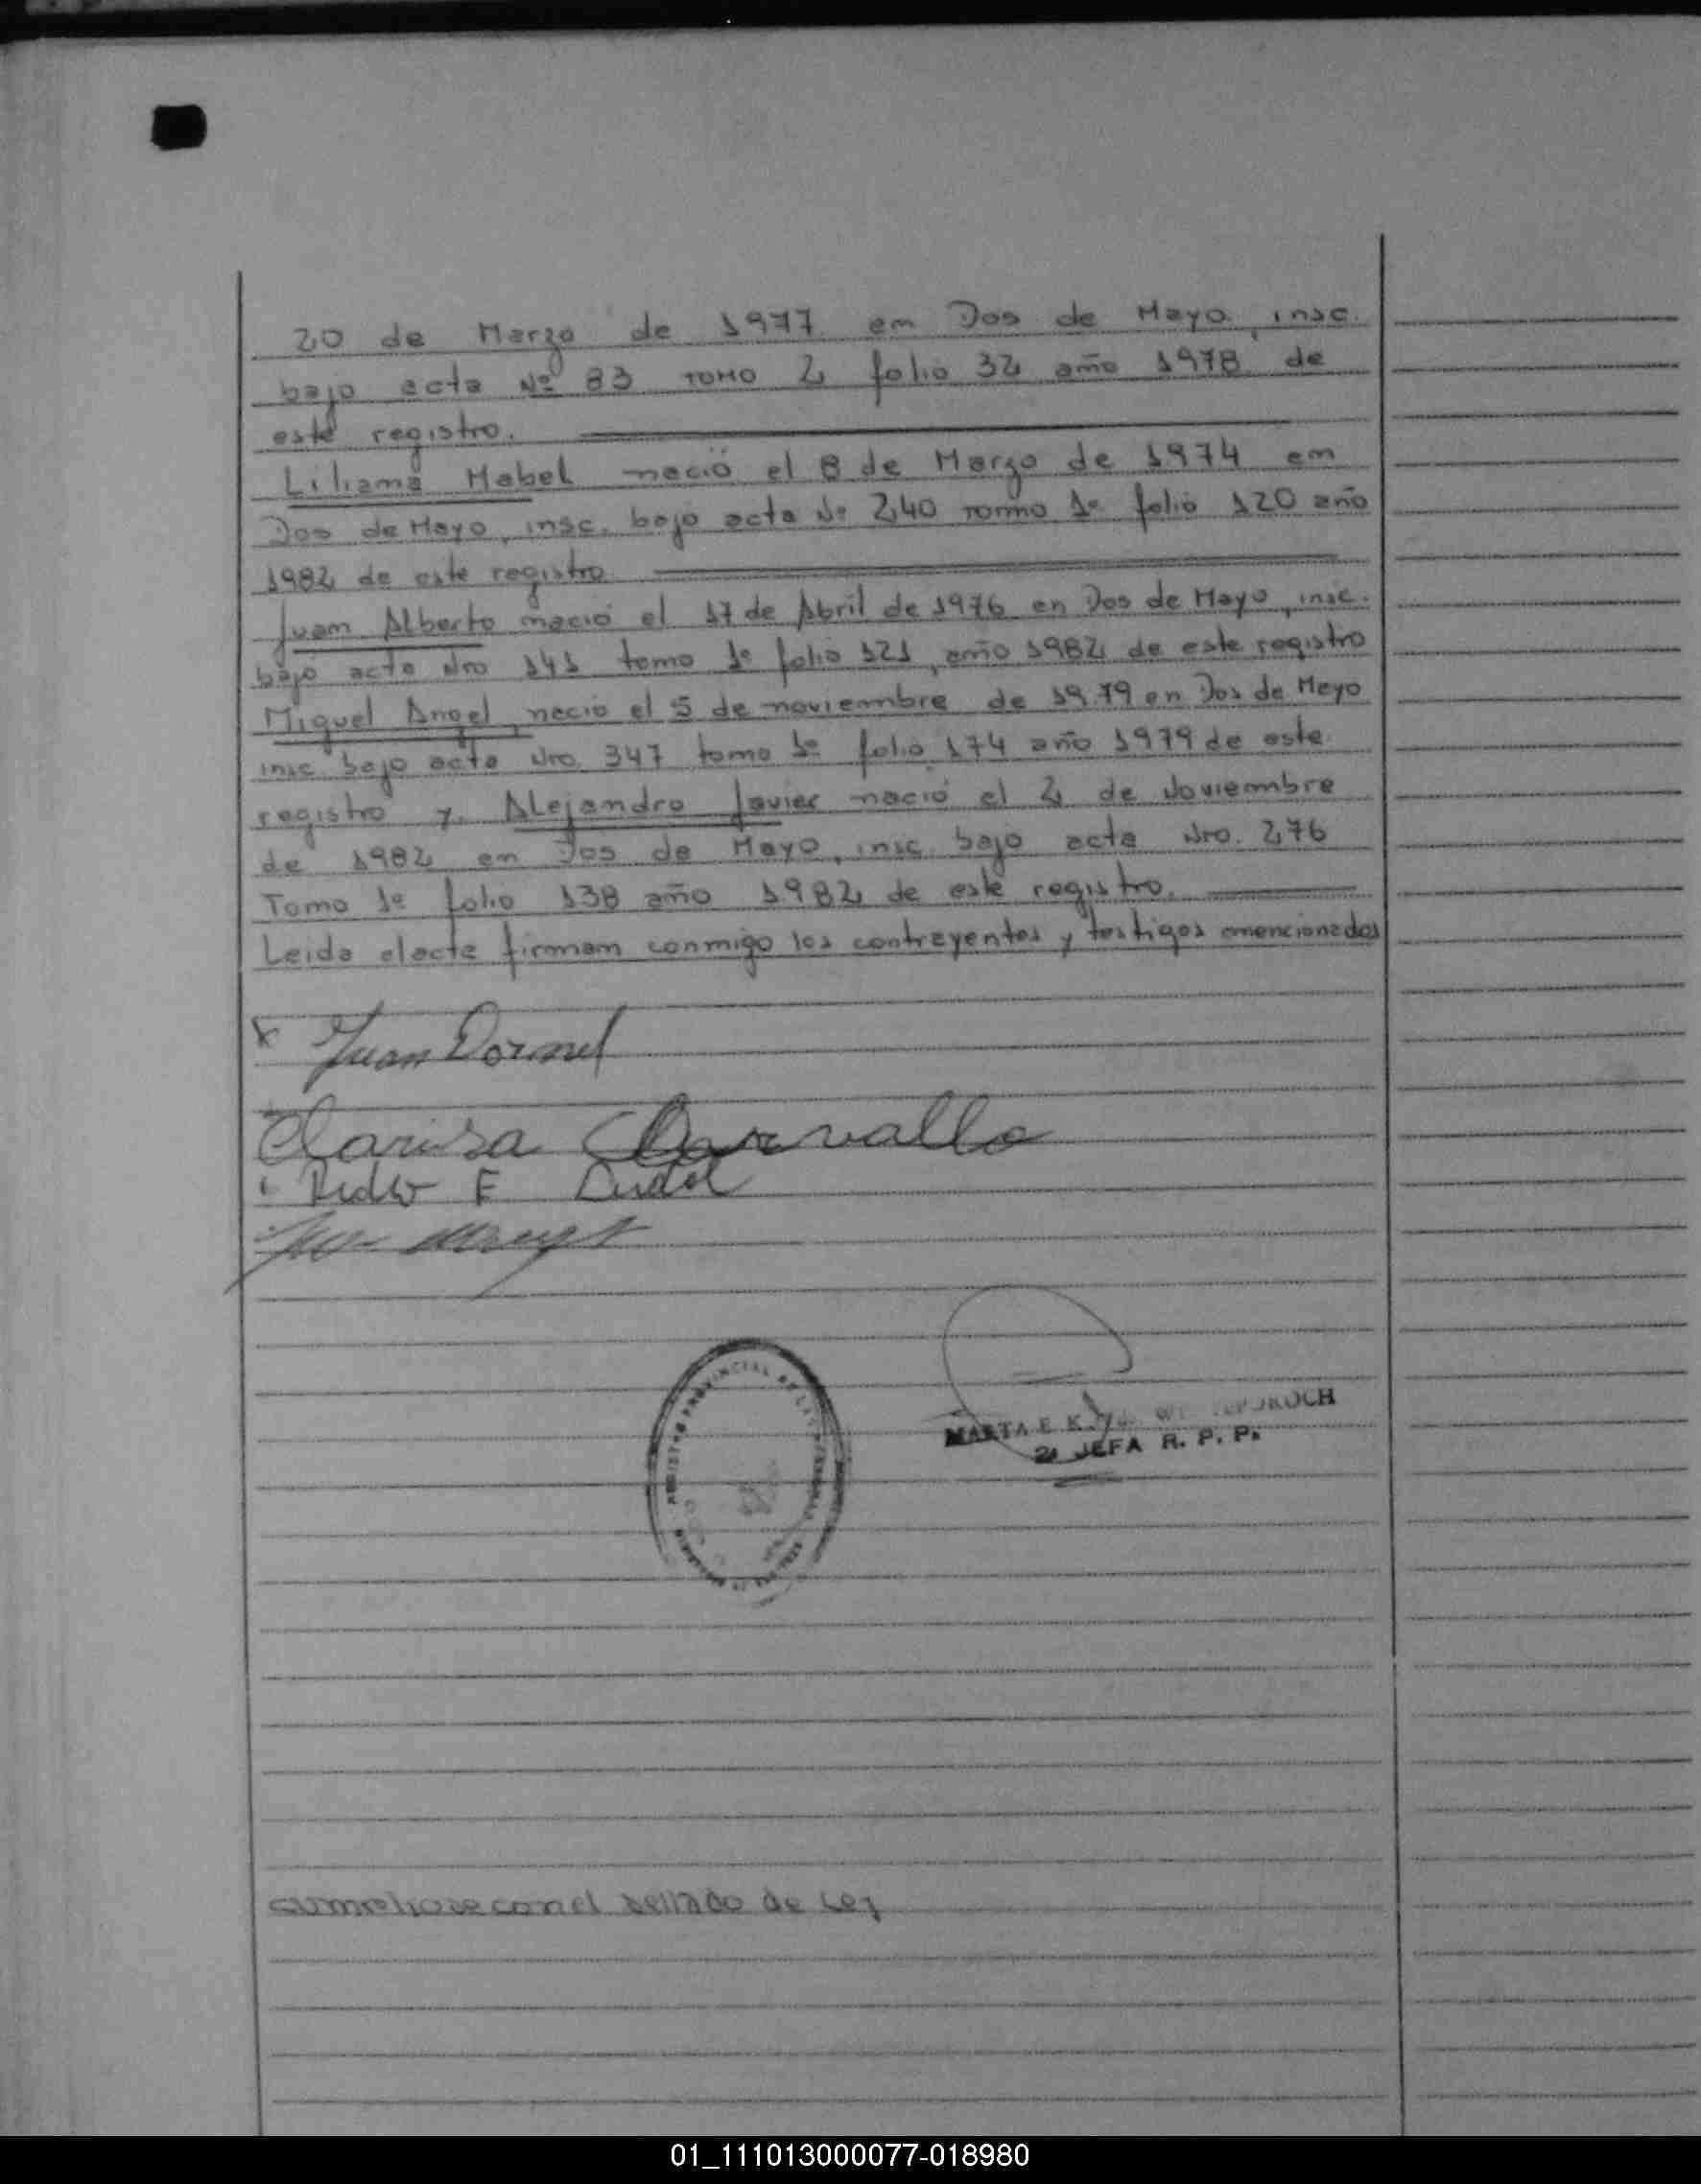 20 de Marzo de 1977 en Dos de Mayo, insc.
bajo acta Nº 83 tomo 2 folio 32 año 1978 de
este registro.
Liliana Mabel nació el 8 de Marzo de 1974 en
Dos de Mayo, insc. bajo acta Nº 240 tomo 1º folio 120 año
1982 de este registro
Juan Alberto nació el 17 de Abril de 1976 en Dos de Mayo, insc.
bajo acta Nro 141 tomo 1º folio 121, año 1982 de este registro
Miguel Angel, nació el 5 de noviembre de 1979 en Dos de Mayo
insc bajo acta Nro. 347 tomo 1º folio 174 año 1979 de este
registro y. Alejandro Javier nació el 2 de Noviembre
de 1982 en Dos de Mayo, insc. bajo acta Nro. 276
Tomo 1º folio 138 año 1982 de este registro.
Leida el acta firman conmigo los contrayentes y testigos mencionados
Juan Dornel
Clarisa Carvallo
Pedro E
REGISTRO PROVINCIAL DE LAS PERSONAS
MARTA E. K.
2º JEFA R. P. P.
cumpliose con el sellado de Ley
01_111013000077-018980